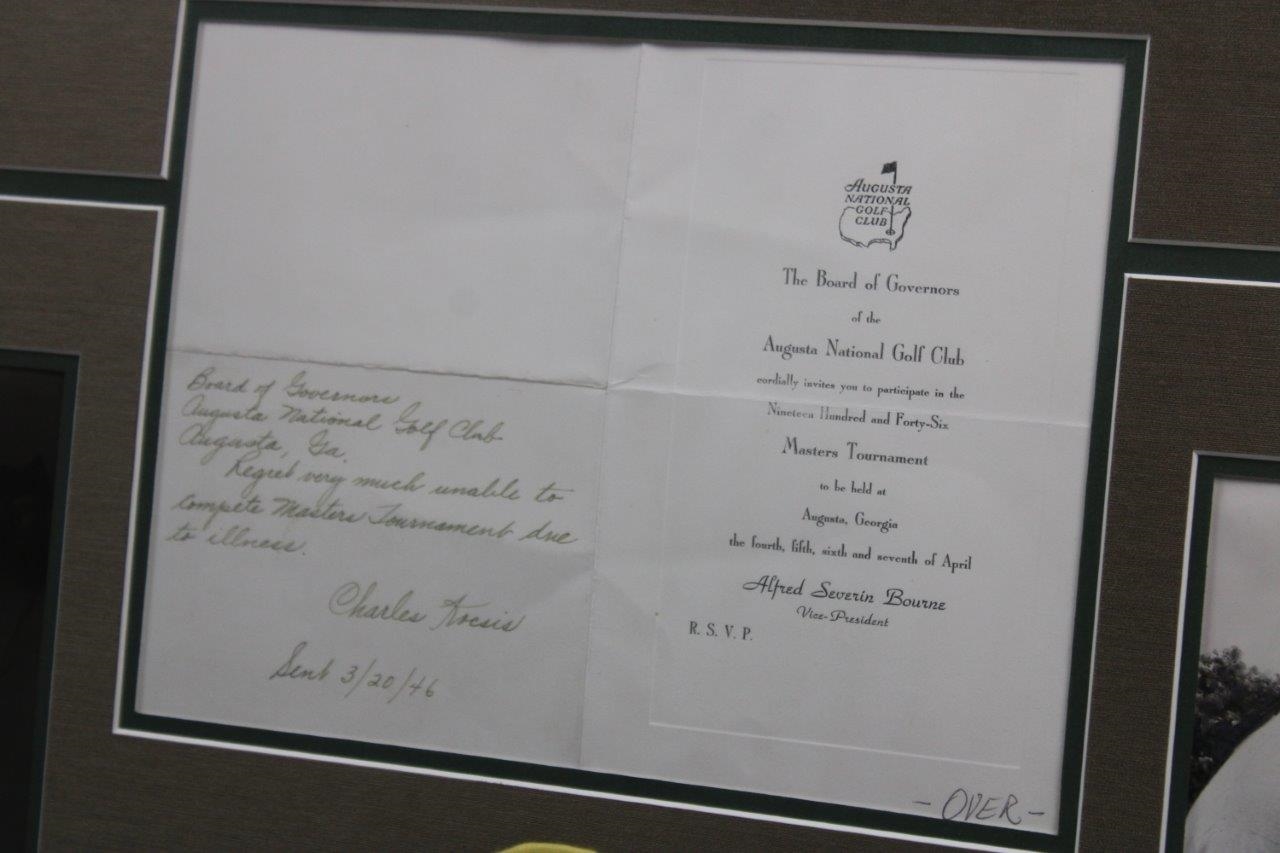 Board of Governors
Augusta National Golf Club
Augusta, Ga.
Regret very much unable to
compete Masters Tournament due
to illness.
Charles Kocsis
Sent 3/20/46
AUGUSTA
NATIONAL
GOLF
CLUB
The Board of Governors
of the
Augusta National Golf Club
cordially invites you to participate in the
Nineteen Hundred and Forty-Six
Masters Tournament
to be held at
Augusta, Georgia
the fourth, fifth, sixth and seventh of April
Alfred Severin Bourne
Vice-President
R. S. V. P.
- OVER -